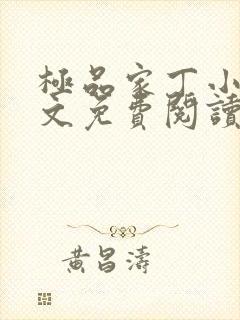 極品家丁小
文免費閱讀
黃昌濤